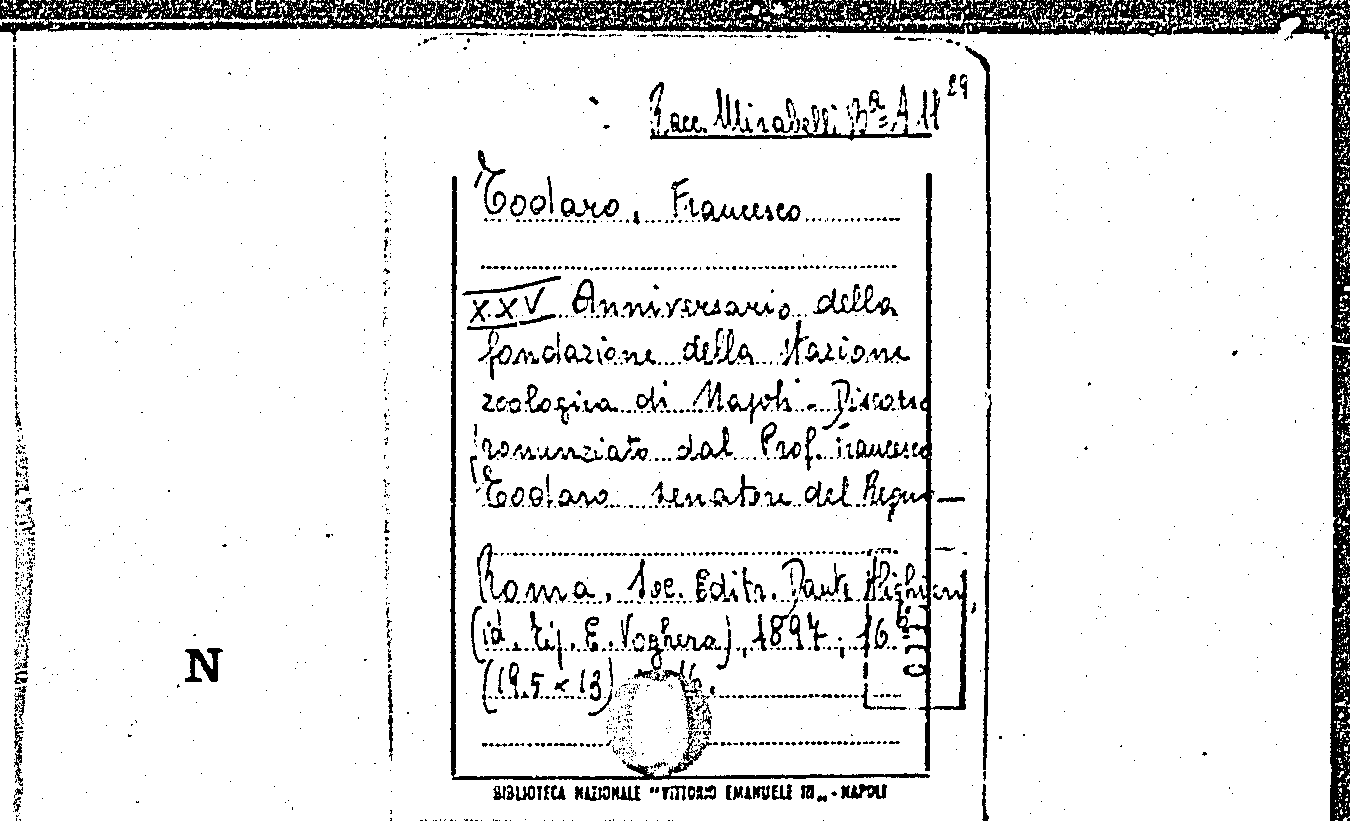 Racc. Mirabelli Bª A 11 29
Todaro, Francesco
XXV Anniversario della
fondazione della stazione
zoologica di Napoli - Discorso
pronunziato dal Prof. Francesco
Todaro senatore del Regno
Roma, Soc. Editr. Dante Alighieri,
(id. tip. E. Voghera), 1897, 16º
(19.5 x 13)
N
BIBLIOTECA NAZIONALE "VITTORIO EMANUELE III" - NAPOLI